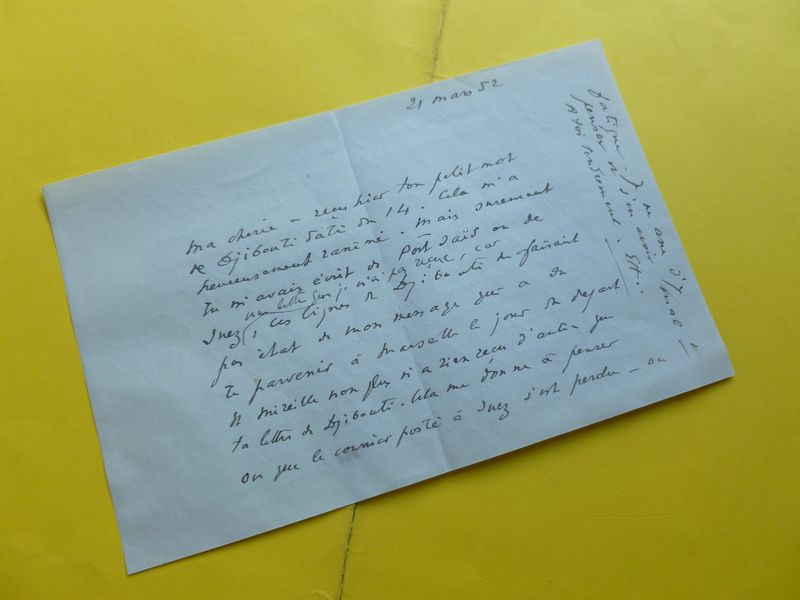 21 mars 52
ma chérie – reçu hier ton petit mot
de Djibouti daté du 14. Cela m'a
heureusement ranimé. Mais surement
tu m'avais écrit de Port Saïd ou de
Suez, une lettre que je n'ai pas reçue, car
ces lignes de Djibouti ne faisant
pas état de mon message qui a du
te parvenir à Marseille le jour du départ
et Mireille non plus n'a rien reçu d'autre que
ta lettre de Djibouti. Cela me donne à penser
ou que le courrier posté à Suez s'est perdu – ou
fatigue
penser et s'en avoir
A toi tendrement.